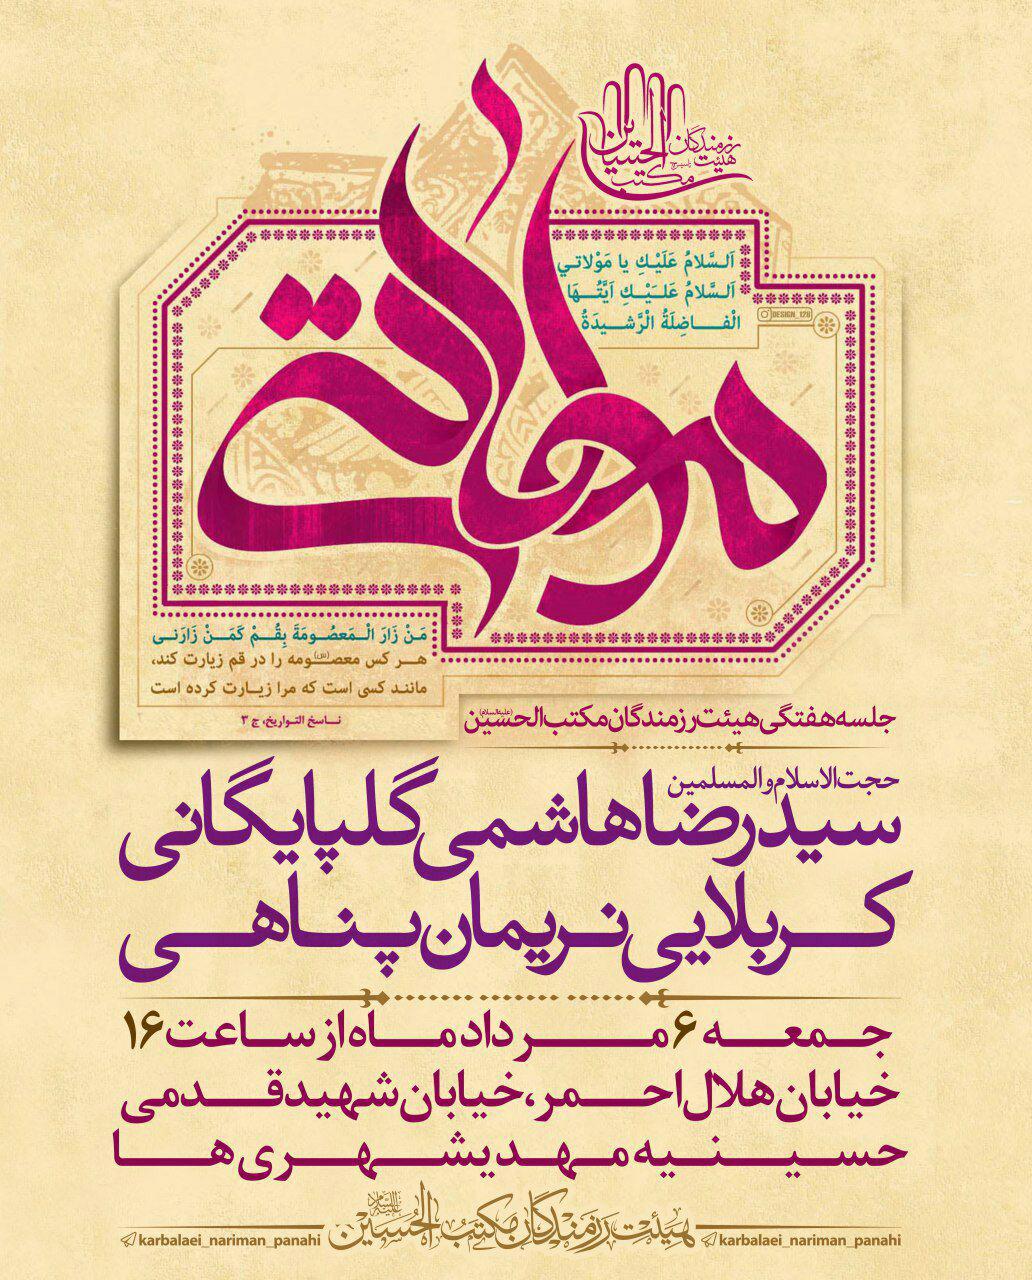 هیئت رزمندگان
مکتب الحسین
اَلسَّلامُ عَلَیْكِ یا مَوْلاتي
اَلسَّلامُ عَلَیْكِ اَیَّتُهَا
الْفاضِلَةُ الْرَّشیدَةُ
DESIGN_128
مولاتي
مَنْ زَارَ الْمَعصُومَةَ بِقُمْ کَمَنْ زَارَنی
هر کس معصومه(س) را در قم زیارت کند،
مانند کسی است که مرا زیارت کرده است
ناسخ التواریخ، ج ۳
جلسه هفتگی هیئت رزمندگان مکتب الحسین (علیه السلام)
حجت الاسلام و المسلمین
سید رضا هاشمی گلپایگانی
کربلایی نریمان پناهی
جمعه ۶ مرداد ماه از ساعت ۱۶
خیابان هلال احمر، خیابان شهید قدمی
حسینیه مهدیشهری ها
هیئت رزمندگان مکتب الحسین علیه السلام
karbalaei_nariman_panahi
karbalaei_nariman_panahi